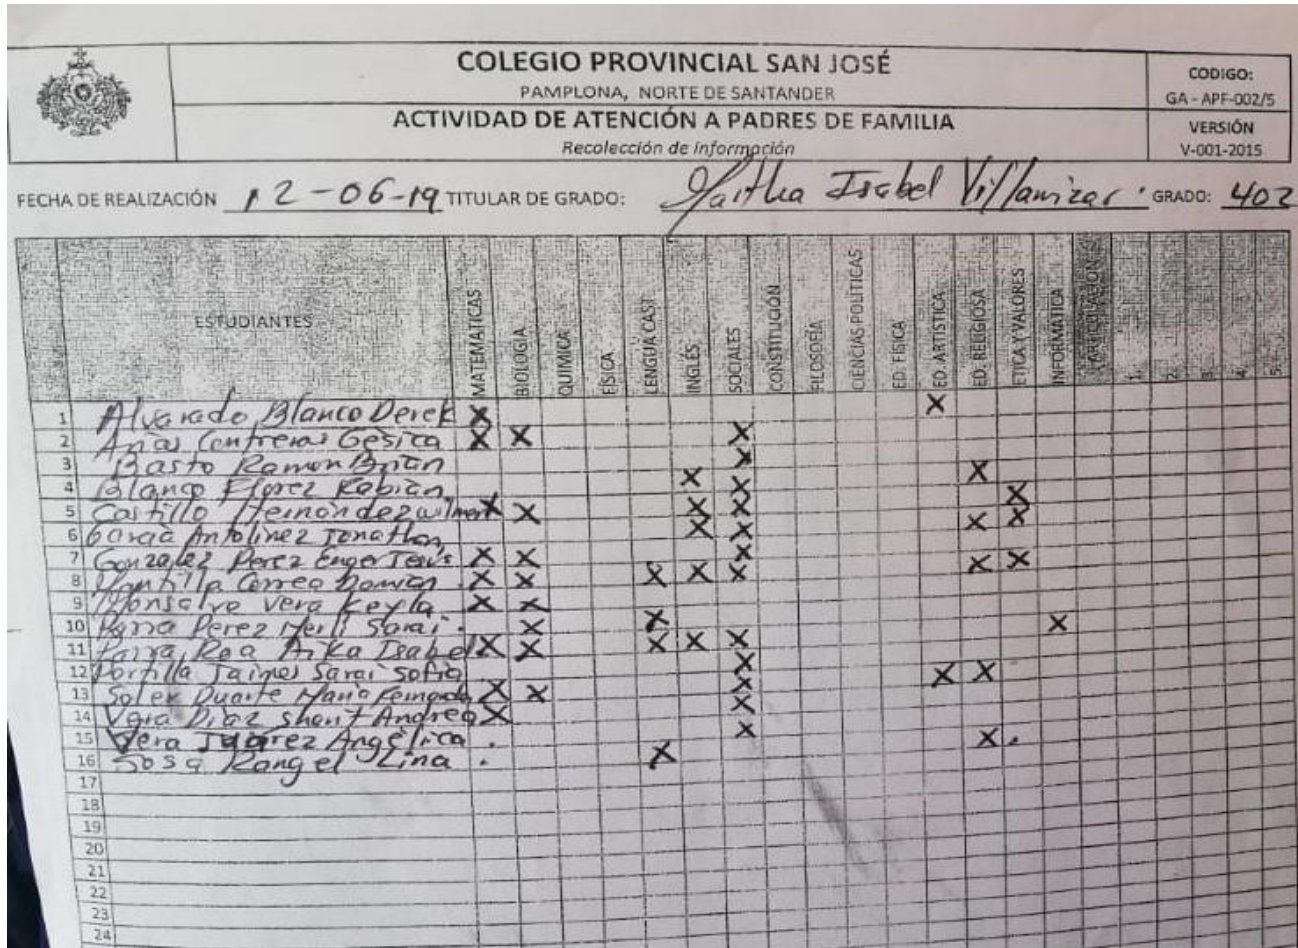 COLEGIO PROVINCIAL SAN JOSÉ
PAMPLONA, NORTE DE SANTANDER
ACTIVIDAD DE ATENCIÓN A PADRES DE FAMILIA
Recolección de información
CODIGO:
GA - APF-002/5
VERSIÓN
V-001-2015
FECHA DE REALIZACIÓN 12-06-19 TITULAR DE GRADO: Martha Isabel Villamizar. GRADO: 402
ESTUDIANTES MATEMATICAS BIOLOGIA QUIMICA FÍSICA LENGUA CAST INGLÉS SOCIALES CONSTITUCIÓN FILOSOFÍA CIENCIAS POLÍTICAS ED. FISICA ED. ARTISTICA ED. RELIGIOSA ETICA Y VALORES INFORMATICA 1. 2. 3. 4. 5.
1 Alvarado Blanco Derek X X
2 Arias Contreras Gesica X X X
3 Basto Ramon Brian X X
4 Blanco Florez Fabian X X X
5 Castillo Hernández X X X X X
6 Garcia Antolinez Jonathan X X
7 Gonzalez Perez Enger Jesús X X X X X
8 Mantilla Correa Damian X X X X X
9 Monsalve Vera Keyla X X
10 Parra Perez Merli Sarai. X X X
11 Parra Roa Aika Isabel X X X X X
12 Portilla Jaimes Sarai Sofia X X X
13 Soler Duarte Maria Fernanda X X X
14 Vera Diaz Andrea X X
15 Vera Juárez Angélica . X X .
16 Sosa Rangel Lina . X
17
18
19
20
21
22
23
24